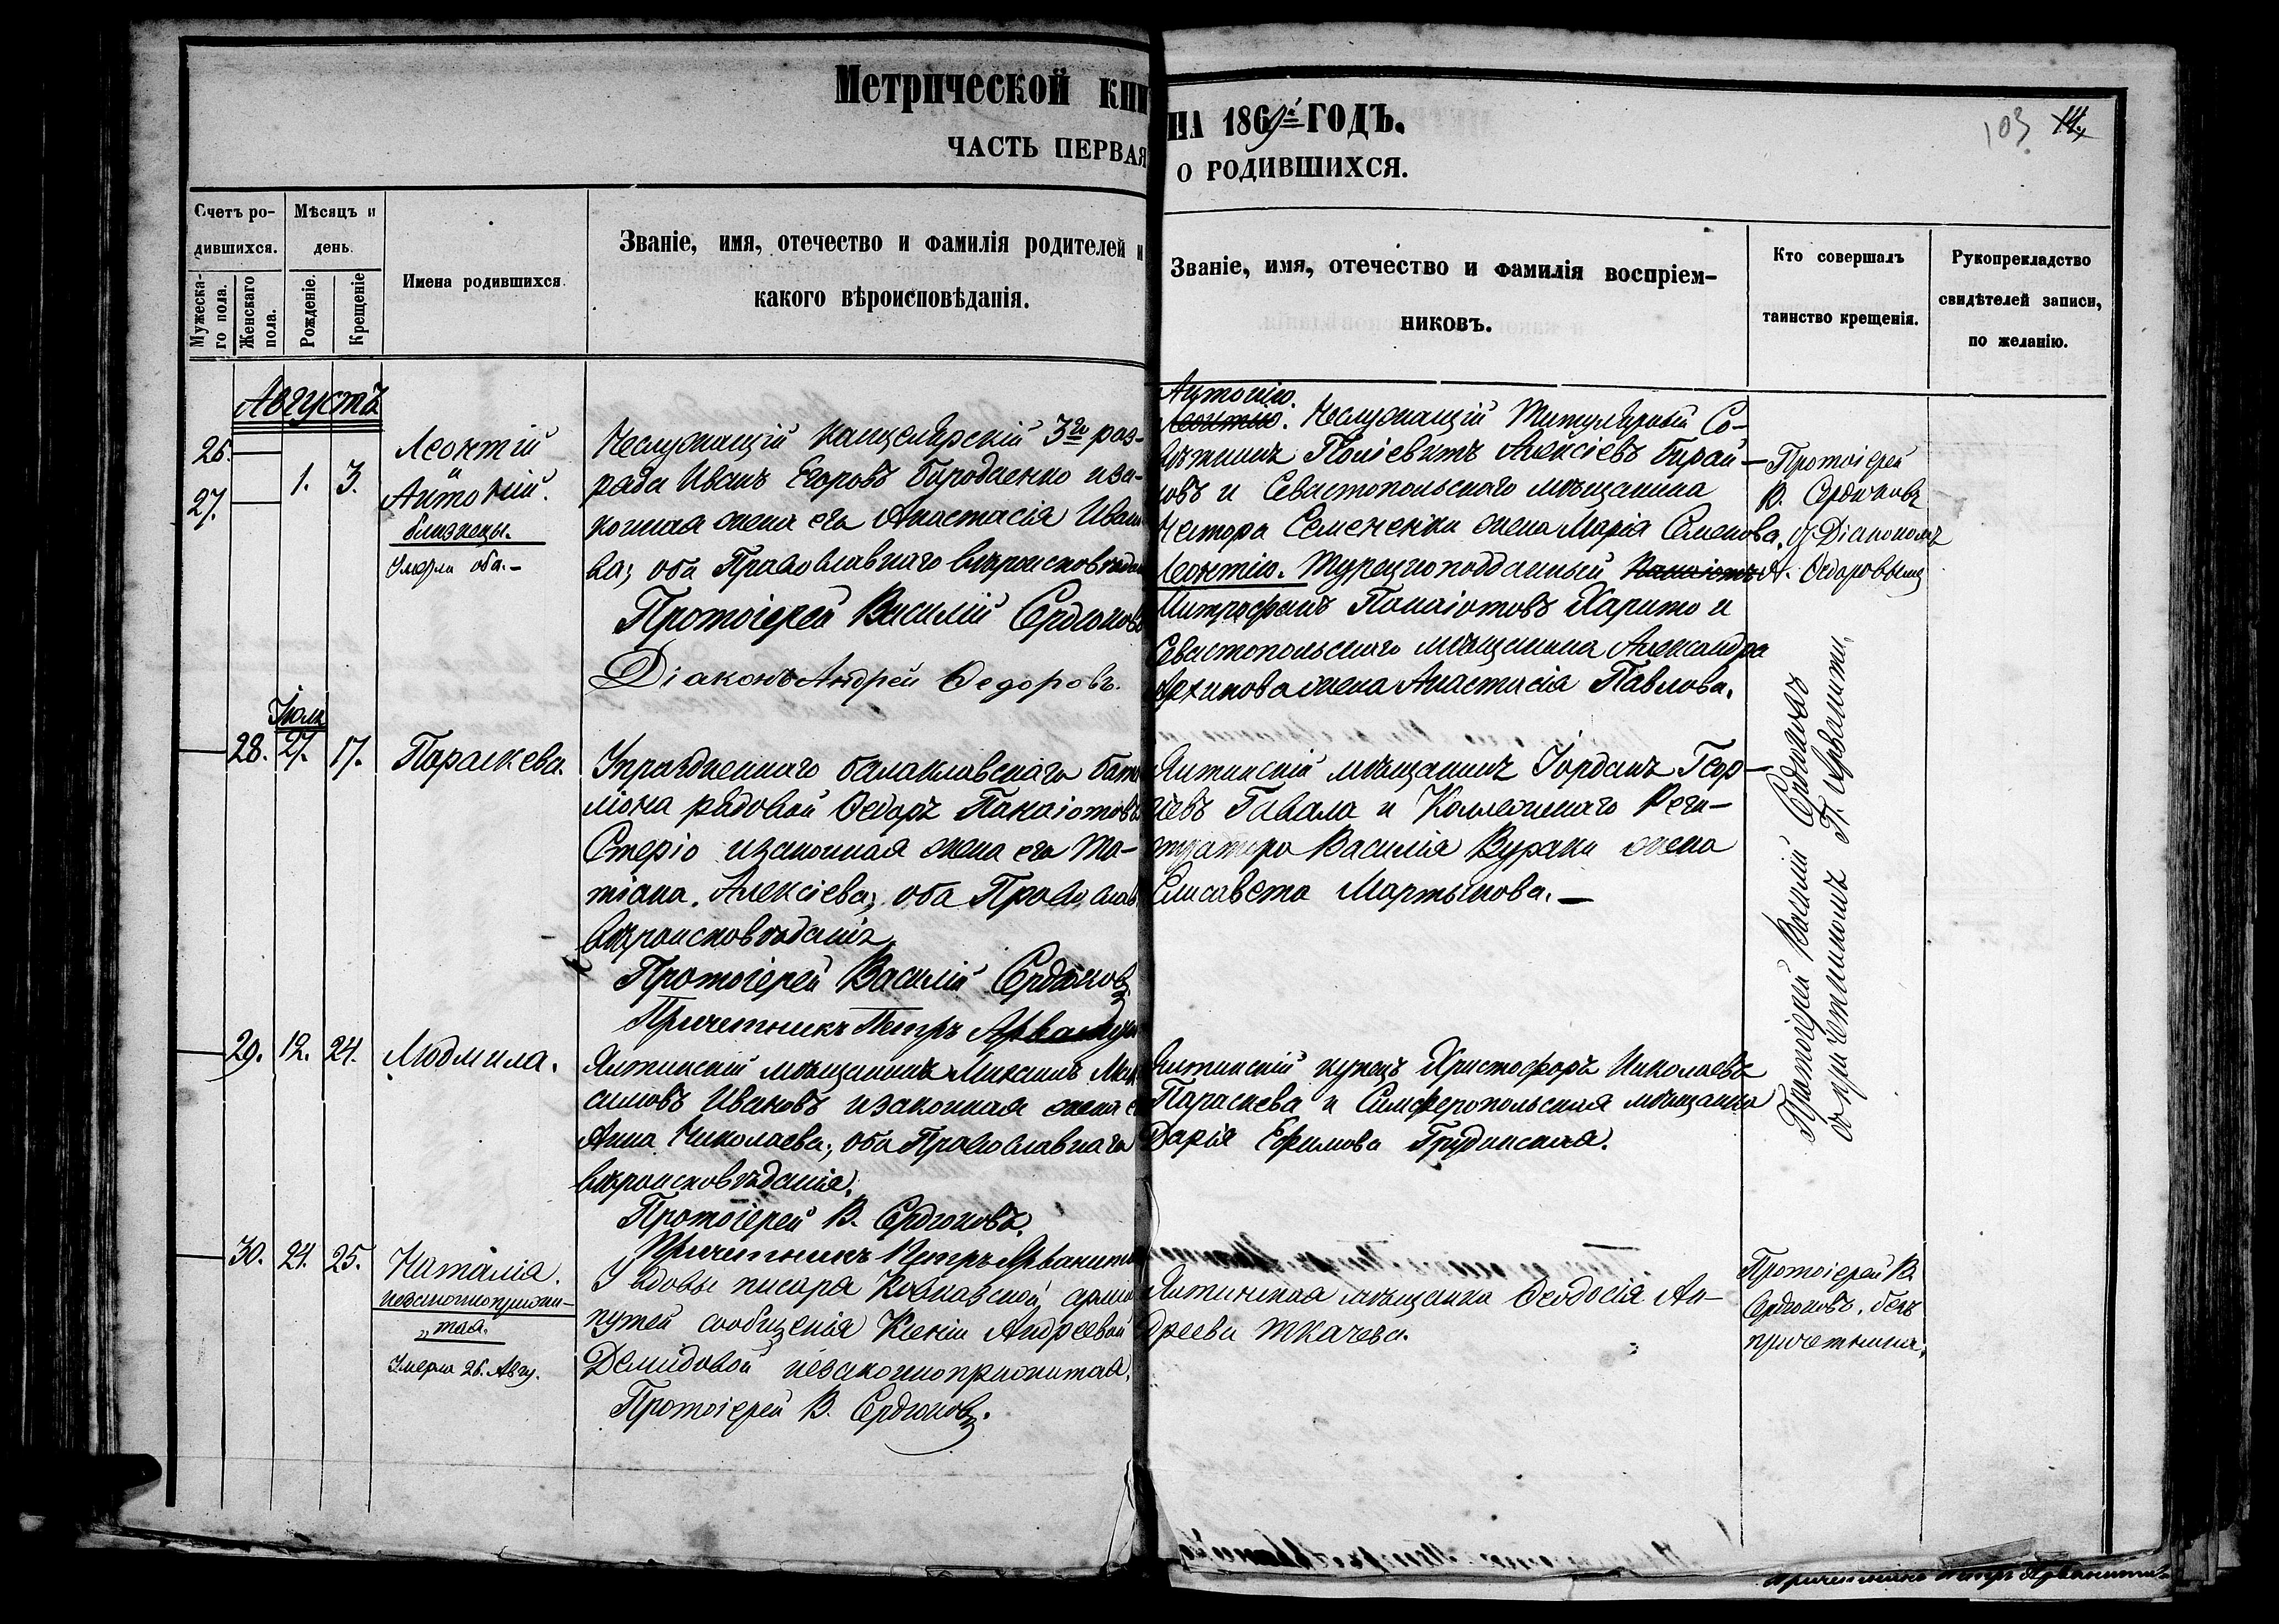 Метрической кни
ЧАСТЬ ПЕРВАЯ
НА 1869й ГОДЪ.
О РОДИВШИХСЯ.
103 14.
Счетъ ро-
дившихся.
Мужеска-
го пола.
Женскаго
пола.
Мѣсяцъ и
день.
Рожденіе.
Крещеніе
Имена родившихся.
Званіе, имя, отечество и фамилія родителей и
какого вѣроисповѣданія.
Званіе, имя, отечество и фамилія воспріем-
никовъ.
Кто совершалъ
таинство крещенія.
Рукопрекладство
свидѣтелей записи,
по желанію.
Августъ
26.
27.
1. 3.
Леонтій
и
Антоній.
близнецы.
Умерли оба.-
Неслужащій Канцелярскій 3го раз-
ряда Иванъ Егоровъ Бородаенко и за-
конная жена его Анастасія Ивано
ва; оба Православнаго вѣроисповѣдан
Протоіерей Василій Сердюковъ
Діаконъ Андрей Ѳедоровъ.
Антонію.
Леонтію. Неслужащій Титулярный Со-
вѣтникъ Алексіевъ
овъ и Севастопольскаго мѣщанина
Нестора Семененки жена Марія Семенова.
Леонтію. Турецкоподданный Панаіотъ
Митрофанъ Панаіотовъ Харито и
Севастопольскаго мѣщанина Александра
Архипова жена Анастасія Павлова.
Протоіерей
В. Сердюковъ
съ Діакономъ
А. Ѳедоровымъ
Іюля
28. 27. 17.
Параскева.
Упраздненнаго балаклавскаго бата
ліона рядовой Ѳедоръ Панаіотовъ
Стеріо и законная жена его Та-
тіана Алексіева; оба Православ.
вѣроисповѣданія
Протоіерей Василій Сердюковъ
Причетникъ Петръ Арванити
Ялтинскій мѣщанинъ Іорданъ Геор-
гіевъ Гавала и Коллежскаго Реги-
стратора Василія Вураки жена
Елисавета Мартынова.-
Протоіерей Василій Сердюковъ
съ причетникомъ П. Арванити.
29. 12. 24.
Людмила.
Ялтинскій мѣщанинъ Максимъ Мак
симовъ Ивановъ и законная жена е
Анна Николаева; оба Православнаго
вѣроисповѣданія.
Протоіерей В. Сердюковъ.
Причетникъ Петръ Арванити
Ялтинскій купецъ Христофоръ Николаевъ
Параскева и Симферопольская мѣщанка
Дарія Ефимова Грудинская.
30. 24. 25.
Наталія.
незаконноприжи-
„тая.
Умерла 26. Авгу.
У вдовы писаря Кавказской арміи
путей сообщенія Ксеніи Андреевой
Демидовой незаконноприжитая.
Протоіерей В. Сердюковъ.
Ялтинская мѣщанка Ѳеодосія Ан-
дреева Ткачева.
Протоіерей В.
Сердюковъ, безъ
причетника.
Причетникъ Петръ Арванити